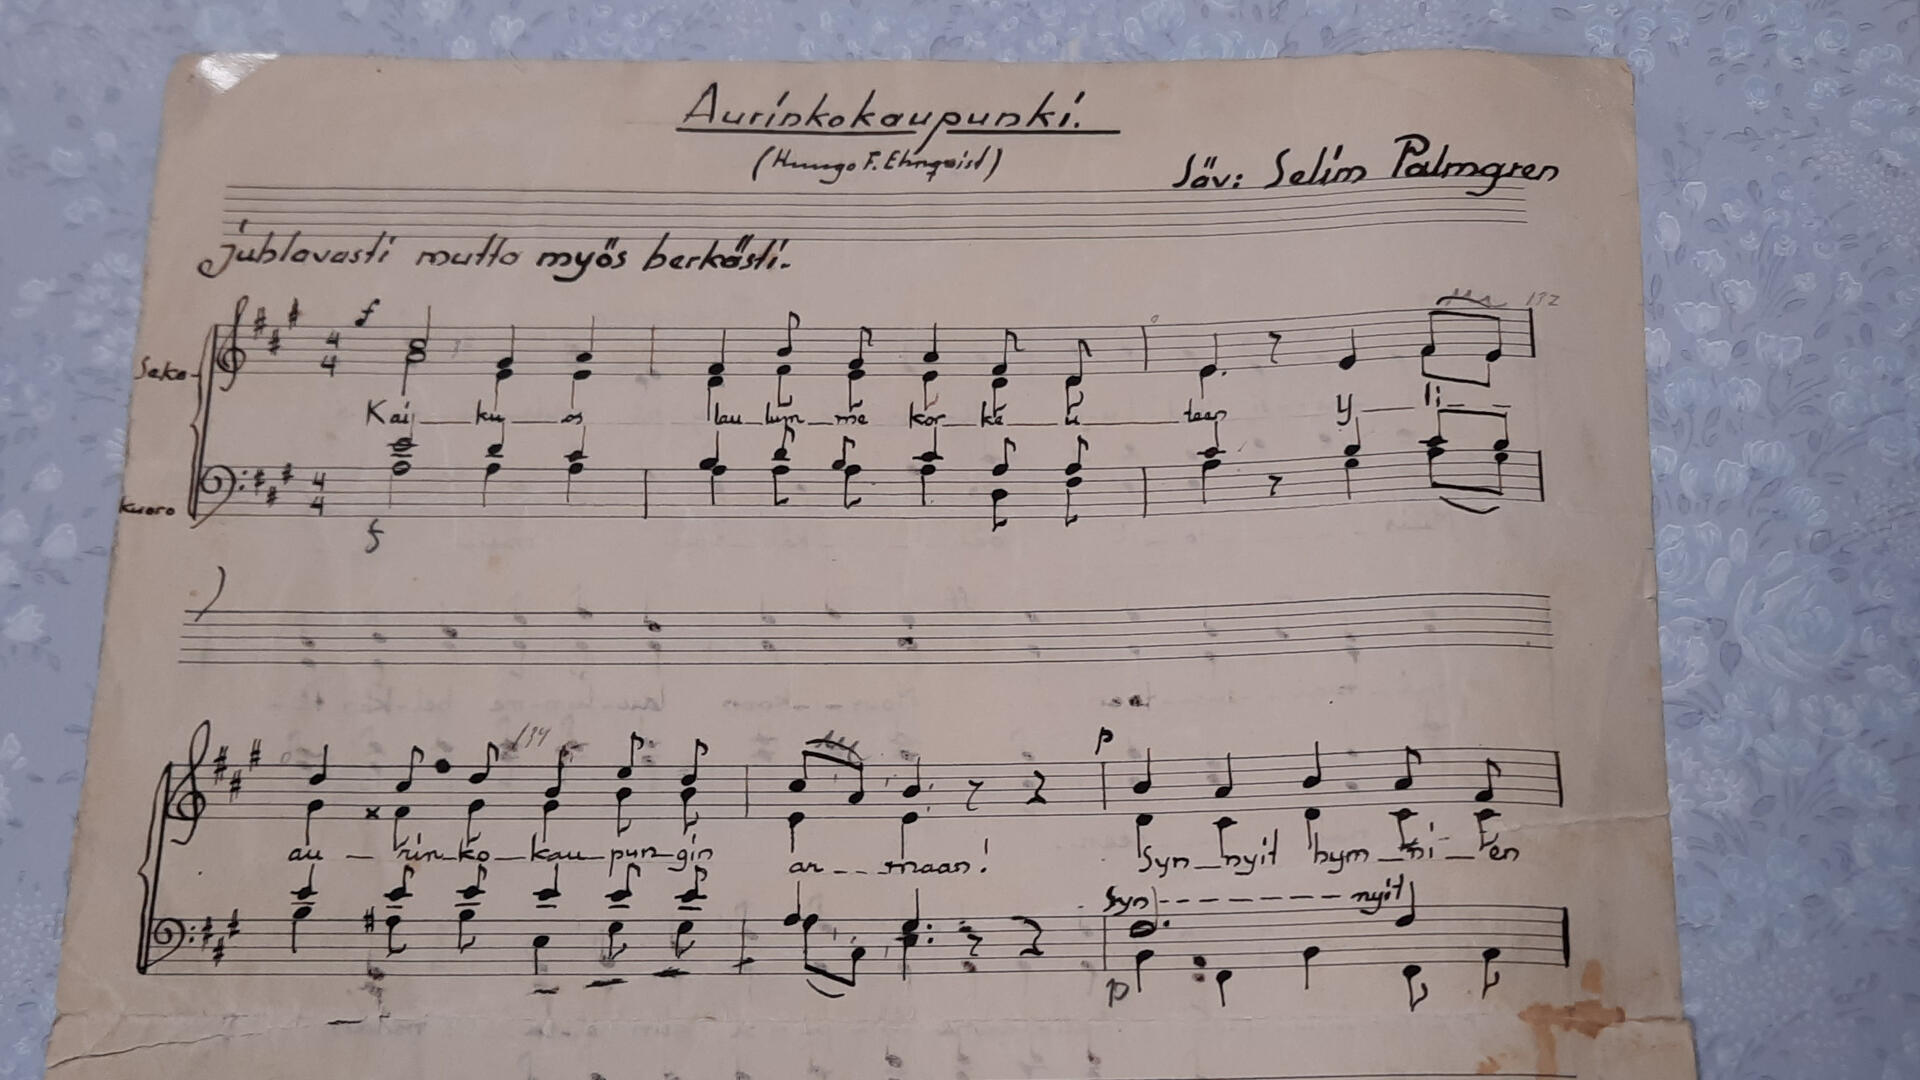 Aurinkokaupunki.
(Hungo F. Ehnqvist)
Säv: Selim Palmgren
juhlavasti mutta myös herkästi.
f
132
4 4
Seka-
Kai__ku__os lau_lum_me kor_ke_u teen y__li
kuoro
4 4
f
134
p
au_rin_ko_kau_pun_gin ar_ _ _maan! Syn_nyit hym_ni_en
Syn - - - - - - - nyit
p